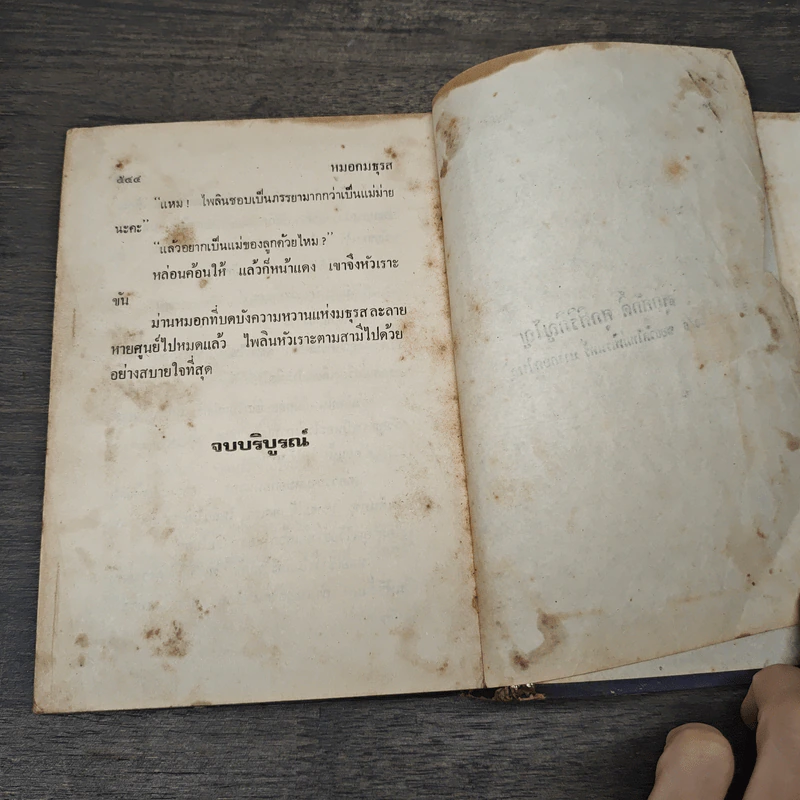 ๕๕๔ หมอกมธุรส
"แหม ! ไพลินชอบเป็นภรรยามากกว่าเป็นแม่ม่าย
นะคะ"
"แล้วอยากเป็นแม่ของลูกด้วยไหม ?"
หล่อนค้อนให้ แล้วก็หน้าแดง เขาจึงหัวเราะ
ขัน
ม่านหมอกที่บดบังความหวานแห่งมธุรสละลาย
หายศูนย์ไปหมดแล้ว ไพลินหัวเราะตามสามีไปด้วย
อย่างสบายใจที่สุด
จบบริบูรณ์